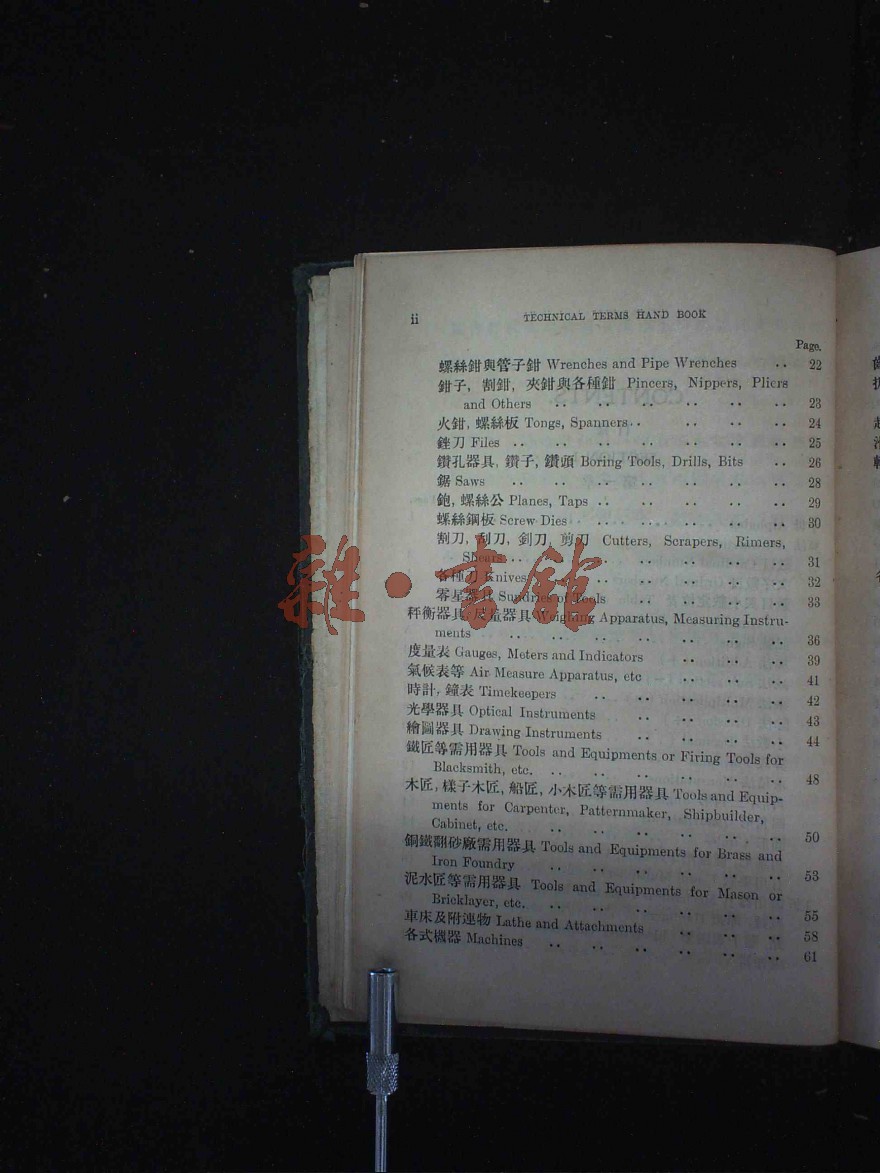 ii TECHNICAL TERMS HAND BOOK
Page.
螺絲鉗與管子鉗 Wrenches and Pipe Wrenches .. 22
鉗子, 割鉗, 夾鉗與各種鉗 Pincers, Nippers, Pliers
and Others .. .. .. .. .. .. 23
火鉗, 螺絲板 Tongs, Spanners .. .. .. .. 24
銼刀 Files .. .. .. .. .. .. .. 25
鑽孔器具, 鑽子, 鑽頭 Boring Tools, Drills, Bits .. 26
鋸 Saws .. .. .. .. .. .. .. 28
鉋, 螺絲公 Planes, Taps .. .. .. .. .. 29
螺絲鋼板 Screw Dies .. .. .. .. .. 30
割刀, 刮刀, 剪刀 Cutters, Scrapers, Rimers,
Shears .. .. .. .. .. .. .. 31
各種刀 Knives .. .. .. .. .. .. 32
零星器具 Sundries of Tools .. .. .. .. 33
秤衡器具, 尺量器具 Weighing Apparatus, Measuring Instru-
ments .. .. .. .. .. .. .. 36
度量表 Gauges, Meters and Indicators .. .. .. 39
氣候表等 Air Measure Apparatus, etc .. .. .. 41
時計, 鐘表 Timekeepers .. .. .. .. .. 42
光學器具 Optical Instruments .. .. .. .. 43
繪圖器具 Drawing Instruments .. .. .. .. 44
鐵匠等需用器具 Tools and Equipments or Firing Tools for
Blacksmith, etc. .. .. .. .. .. .. 48
木匠, 樣子木匠, 船匠, 小木匠等需用器具 Tools and Equip-
ments for Carpenter, Patternmaker, Shipbuilder,
Cabinet, etc. .. .. .. .. .. .. 50
銅鐵翻砂廠需用器具 Tools and Equipments for Brass and
Iron Foundry .. .. .. .. .. .. 53
泥水匠等需用器具 Tools and Equipments for Mason or
Bricklayer, etc. .. .. .. .. .. .. 55
車床及附連物 Lathe and Attachments .. .. .. 58
各式機器 Machines .. .. .. .. .. .. 61
雜·書館